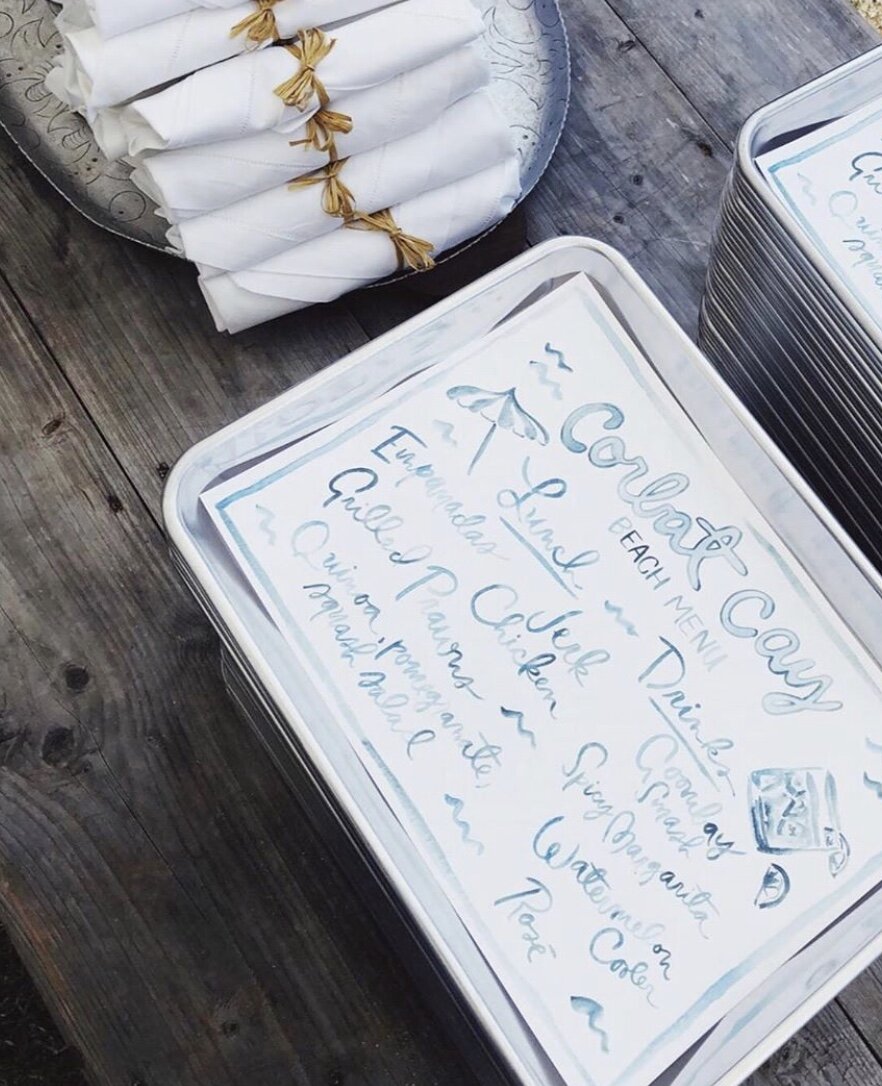 Corbat Cay
BEACH MENU
Lunch
Empanadas Jerk
Chicken
Grilled Prawns
Quinoa, pomegranate,
squash salad
Drinks
Goombay
Smash
Spicy Margarita
Watermelon
Cooler
Rosé
Qu
squas